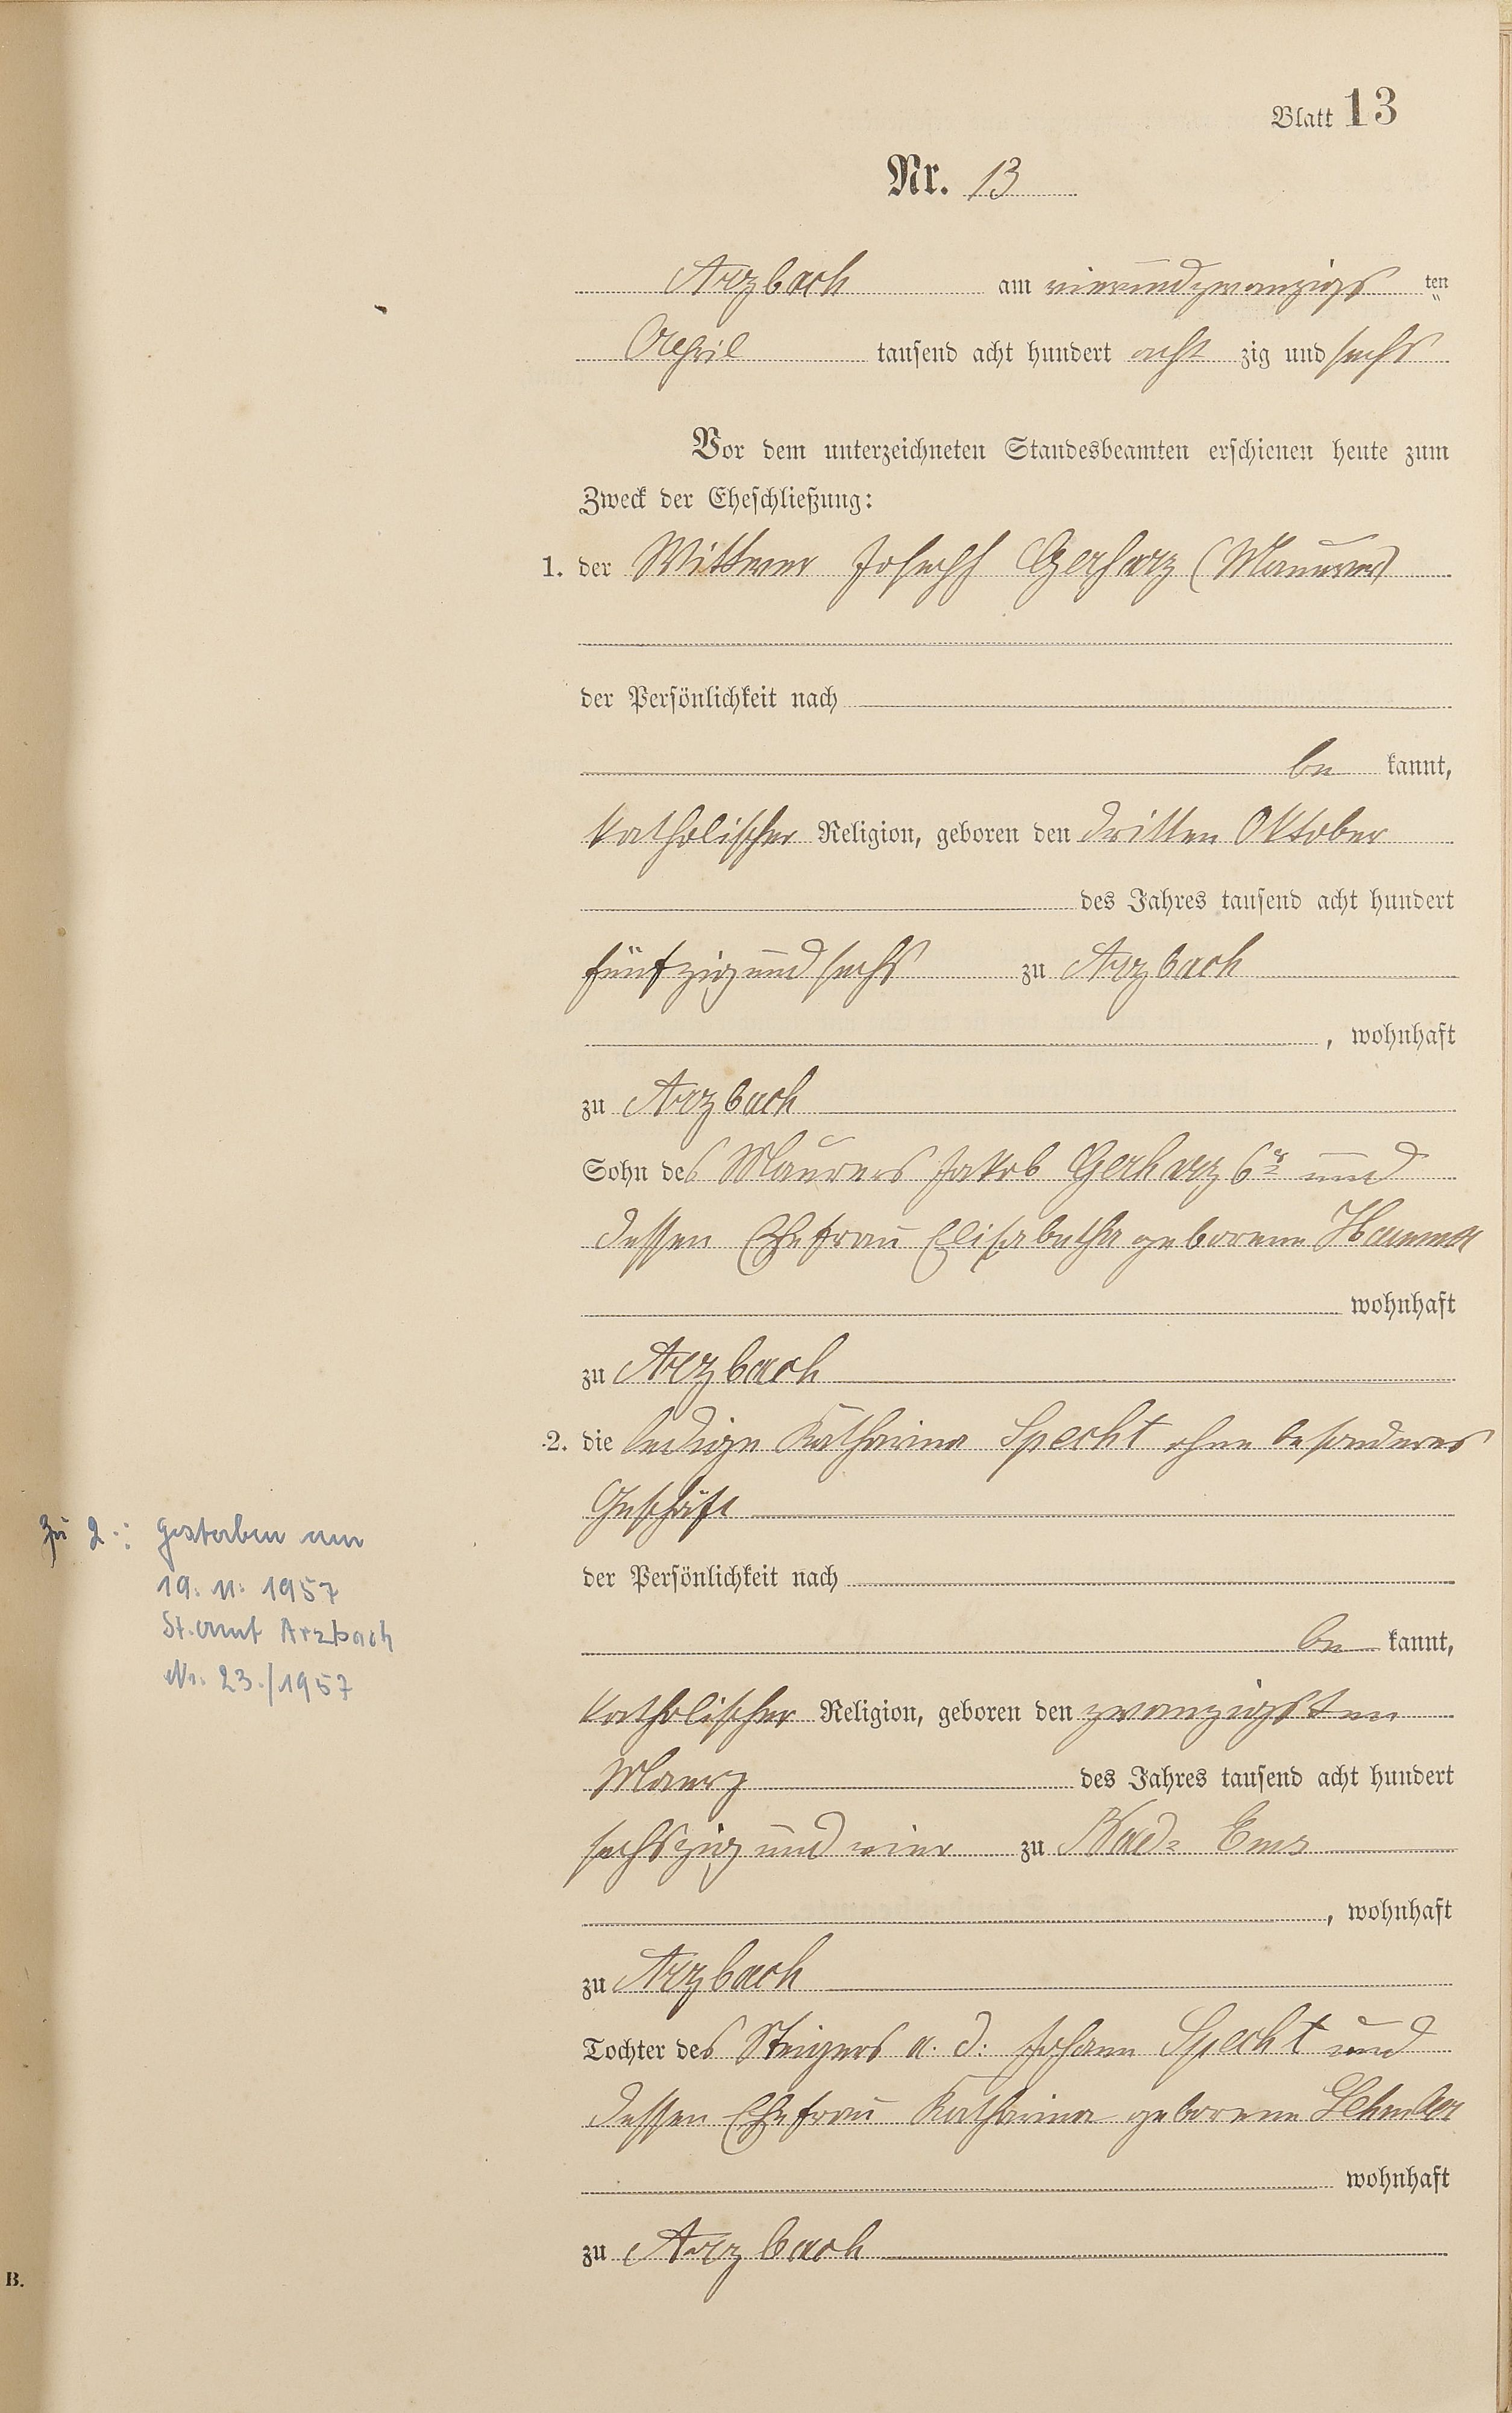 Blatt 13
Nr. 13
Arzbach am vierundzwanzigs ten
April tausend acht hundert acht zig und sechs
Vor dem unterzeichneten Standesbeamten erschienen heute zum
Zweck der Eheschließung:
1. der Wittwer Joseph Gerharz (Maurer)
der Persönlichkeit nach
be kannt,
katholischer Religion, geboren den dritten Oktober
des Jahres tausend acht hundert
fünfzig und sechs zu Arzbach
, wohnhaft
zu Arzbach
Sohn des Maurers Jakob Gerharz 6r und
dessen Ehefrau Elisabetha geborene
wohnhaft
zu Arzbach
2. die ledige Katharina Specht ohne besonderes
Geschäft
der Persönlichkeit nach
be kannt,
katholischer Religion, geboren den zwanzigsten
Maerz des Jahres tausend acht hundert
sechszig und vier zu Bad-Ems
, wohnhaft
zu Arzbach
Tochter des Steigers a. d. Johann Specht und
dessen Ehefrau Katharina geborene
wohnhaft
zu Arzbach
zu 2.: gestorben am
19. 11. 1957
St.amt Arzbach
Nr. 23./1957
B.